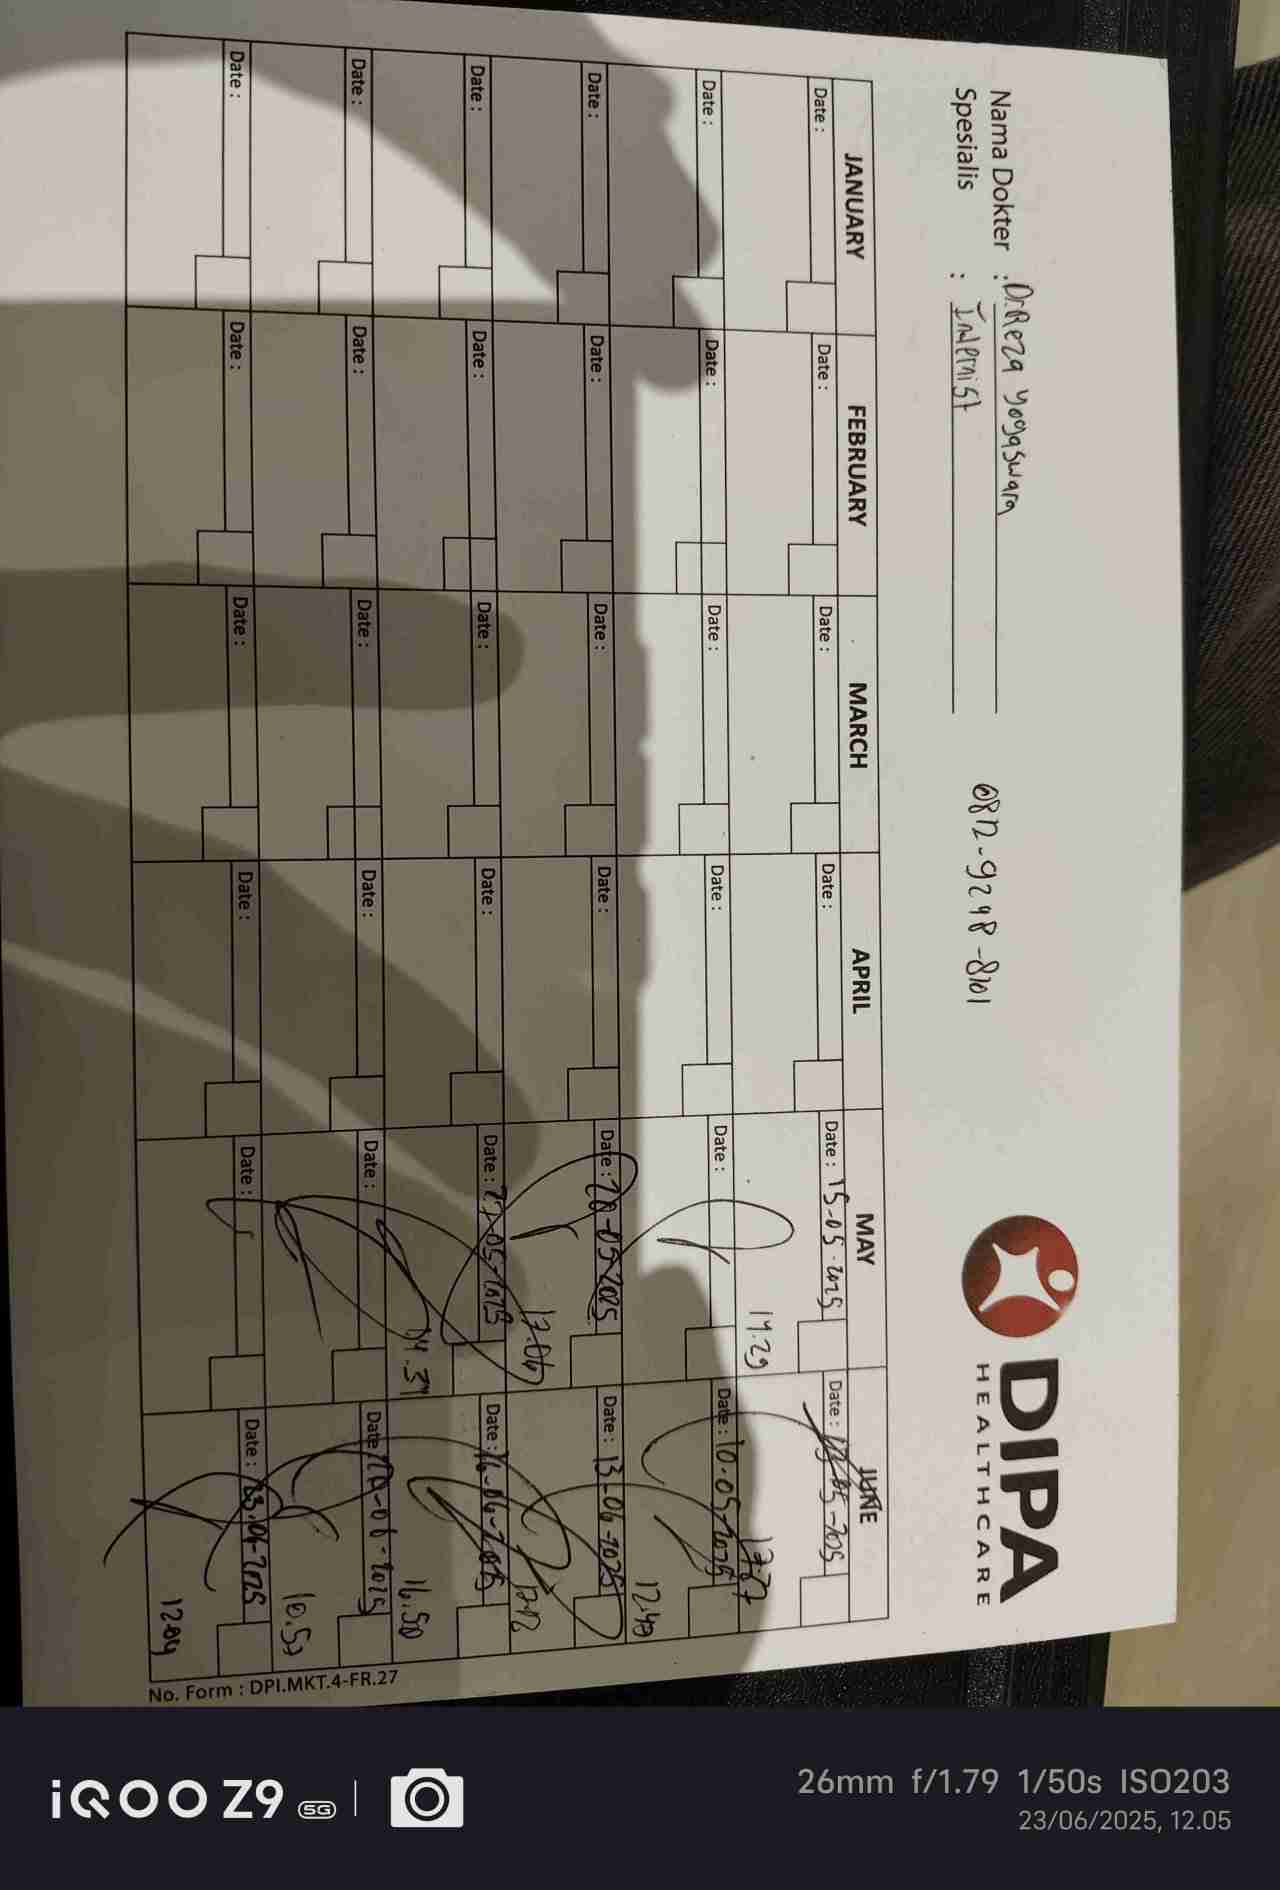 DIPA
HEALTHCARE
Nama Dokter : Dr. Reza Yogaswara
Spesialis : Internist
JANUARY FEBRUARY MARCH APRIL MAY JUNE
Date : Date : Date : Date : Date : 15-05-2025 Date :
14.29
Date : Date : Date : Date : Date : Date : 10-05-2025
12.49
Date : Date : Date : Date : Date : 20-05-2025 Date : 13-06-2025
17.06
Date : Date : Date : Date : Date : 27-05-2025 Date : 16-06-2025
16.50
Date : Date : Date : Date : Date : Date :
Date : Date : Date : Date : Date : Date : 23-06-2025
12.04
No. Form : DPI.MKT.4-FR.27
iQOO Z9 5G
26mm f/1.79 1/50s ISO203
23/06/2025, 12.05